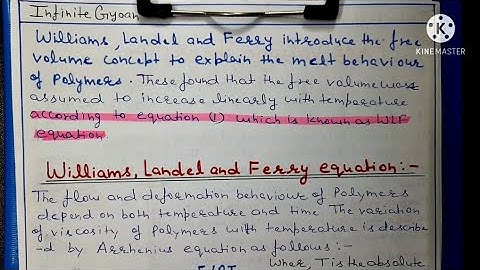 Infinite Gyoan
KINEMASTER
Williams, Landel and Ferry introduce the free
volume concept to explain the melt behaviour
of Polymers. These found that the free volume was
assumed to increase linearly with temperature
according to equation (1) which is known as WLF
equation.
Williams, Landel and Ferry equation:-
The flow and deformation behaviour of Polymers
depend on both temperature and time The variation
of viscosity of Polymers with temperature is describe
-d by Arrhenius equation as follows:-
Wher, T is the absolute